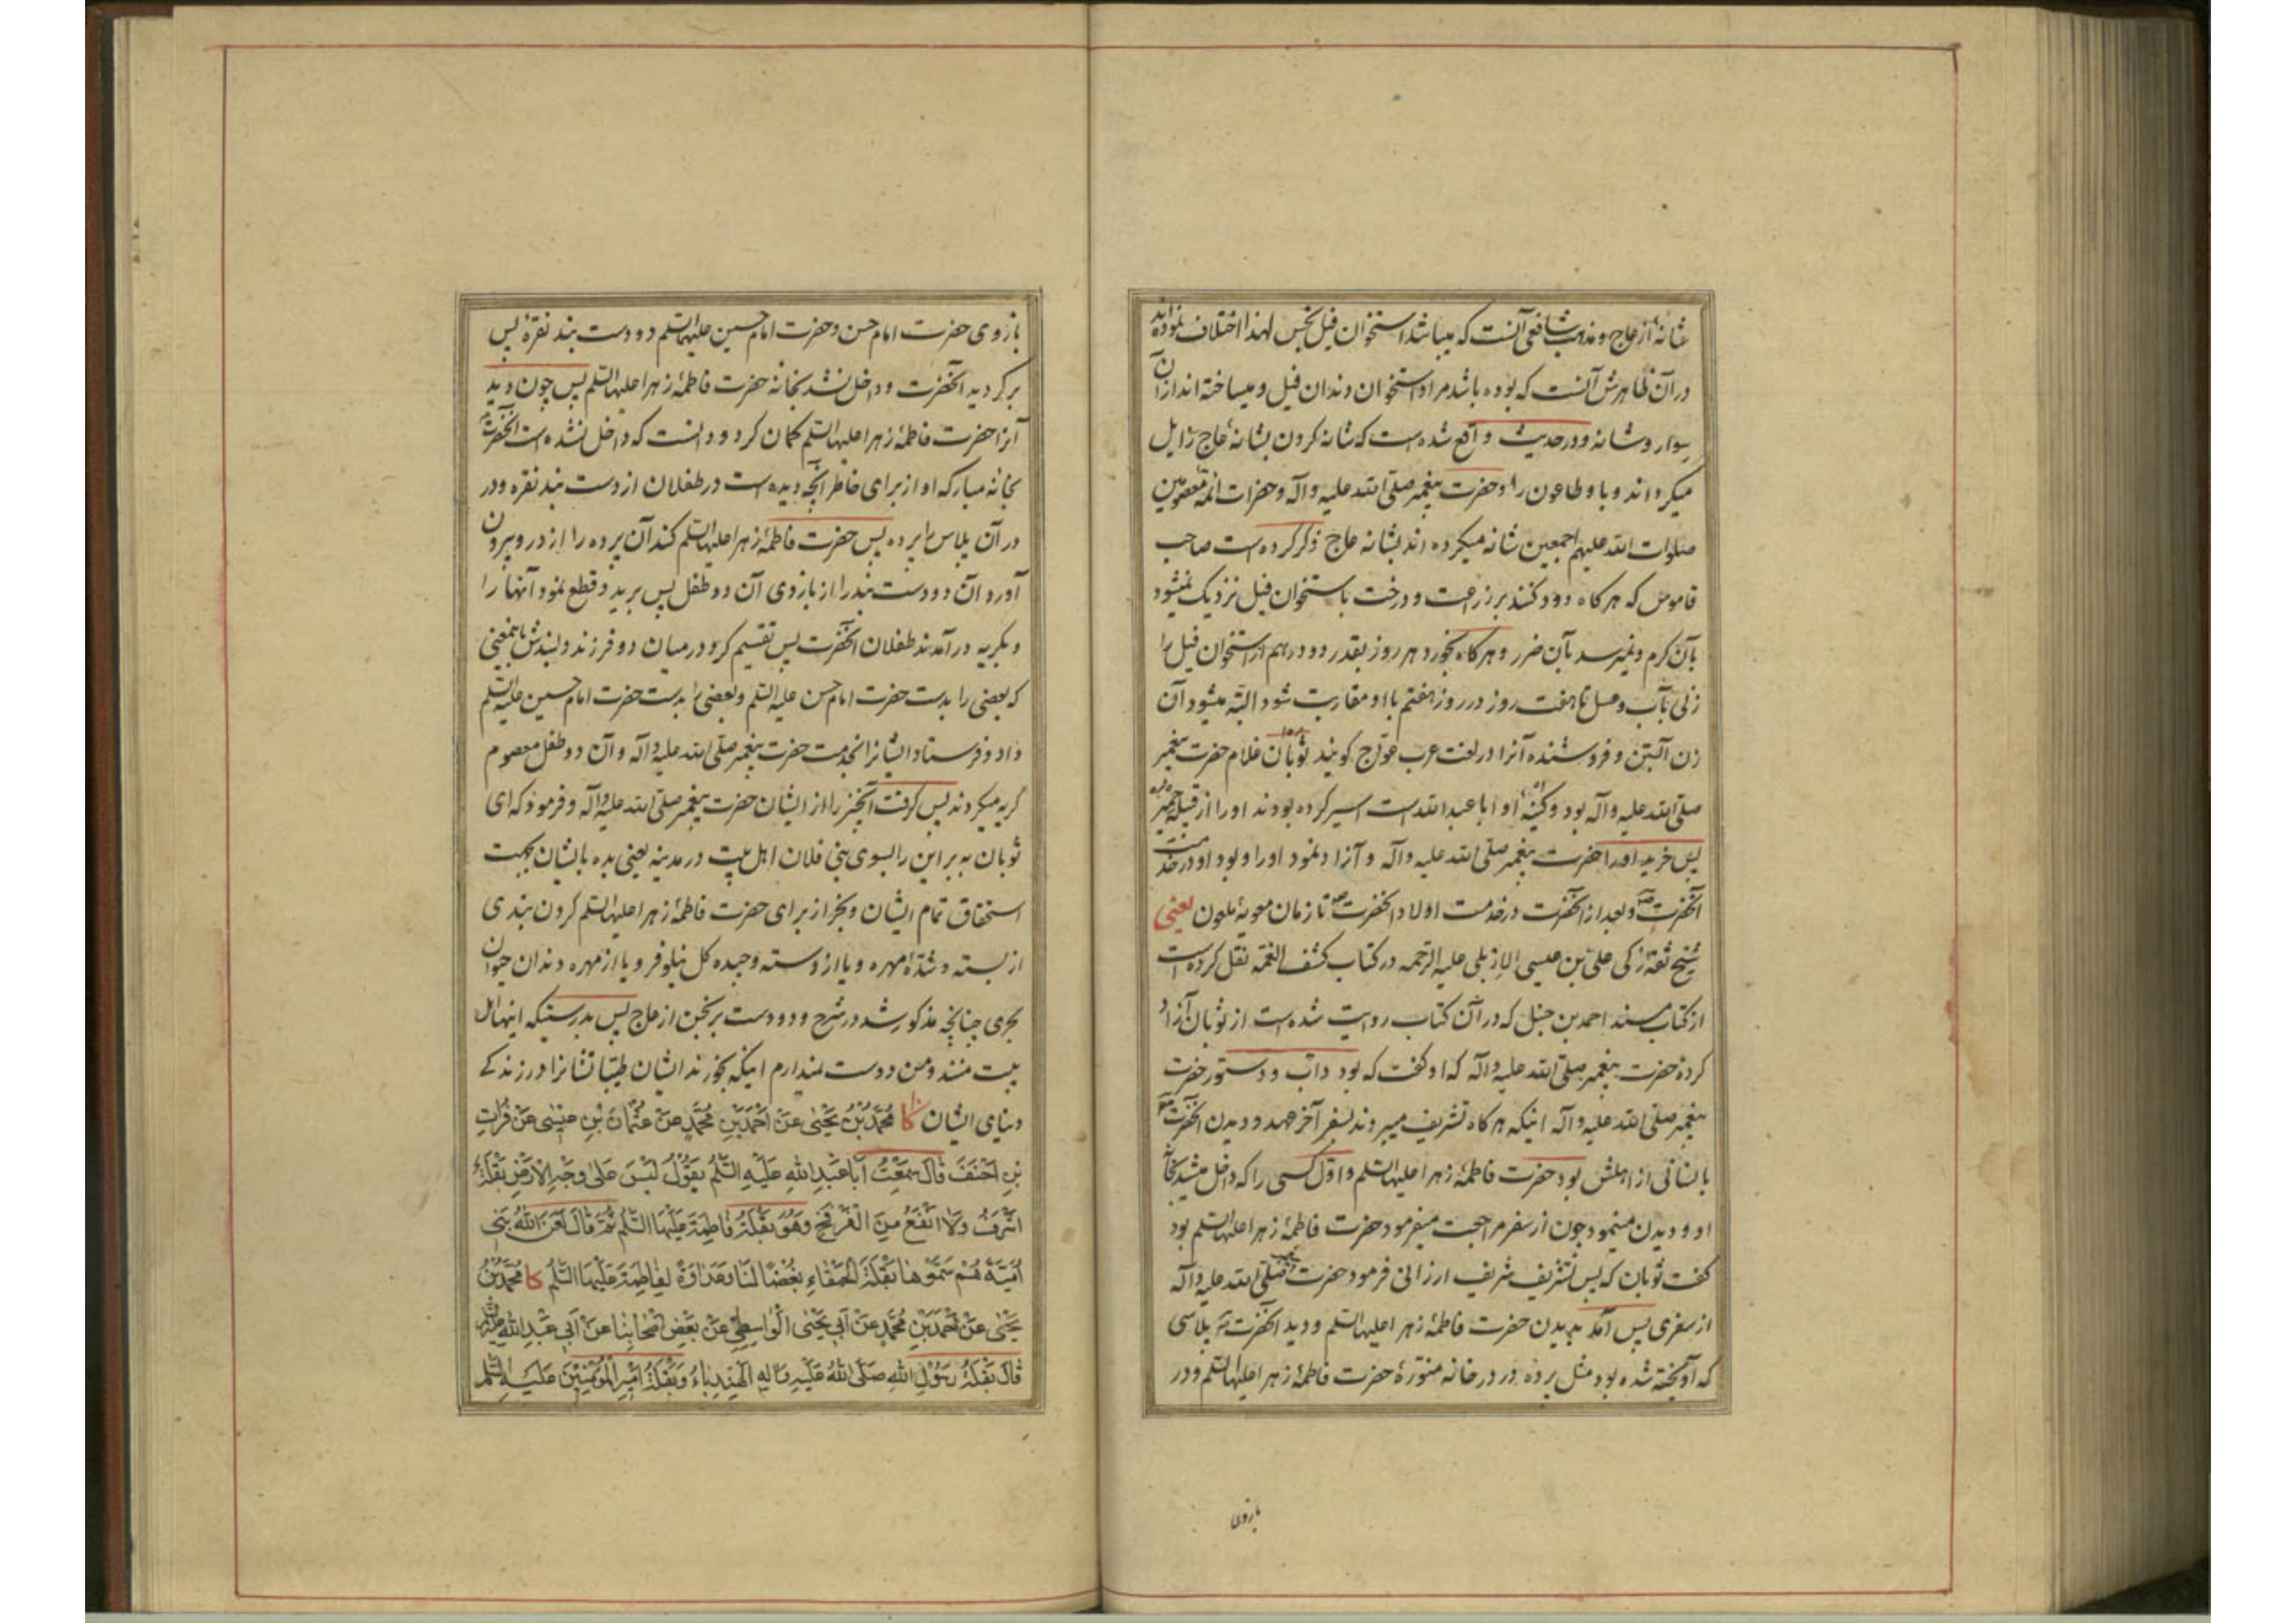 شانهٔ از عاج و مذهب شافعی آنست که میباشد استخوان فیل نجس لهذا اختلاف نموده‌اند
در آن ظاهرش آنست که بوده باشد مراد استخوان دندان فیل و میساخته‌اند از آن
سوار و شانه و در حدیث واقع شده است که شانه کردن بشانهٔ عاج زایل
میکرداند وبا و طاعون را و حضرت پیغمبر صلی الله علیه و آله و حضرات ائمه معصومین
صلوات الله علیهم اجمعین شانه میکرده اند بشانه عاج ذکر کرده است صاحب
قاموس که هر کاه دود کنند بر زراعت و درخت باستخوان فیل نزدیک نمیشود
بآن کرم و نمیرسد بآن ضرر و هر کاه بخورد هر روز بقدر دو درهم از استخوان فیل را
زنی بآب و عسل تا هفت روز در روز هفتم با او مقاربت شود البته میشود آن
زن آبستن و فروشنده آنرا در لغت عرب عوّاج کویند ثوبان غلام حضرت پیغمبر
صلی الله علیه و آله بود و کنیهٔ او ابا عبد الله است اسیر کرده بودند او را از قبیله حمیر
پس خرید او را حضرت پیغمبر صلی الله علیه و آله و آزاد نمود او را و بود او در خدمت
آنحضرت و بعد از آنحضرت در خدمت اولاد آنحضرت تا زمان معویهٔ ملعون یعنی
شیخ ثقه زکی علی بن عیسی الاربلی علیه الرحمه در کتاب کشف الغمه نقل کرده است
از کتاب مسند احمد بن حنبل که در آن کتاب روایت شده است از ثوبان آزاد
کردهٔ حضرت پیغمبر صلی الله علیه و آله که او کفت که بود داب و دستور حضرت
پیغمبر صلی الله علیه و آله اینکه هر کاه تشریف میبردند بسفر آخر عهد و دیدن آنحضرت
بانسانی از اهلش بود حضرت فاطمهٔ زهرا علیها السلم و اول کسی را که داخل میشد بخانهٔ
او و دیدن مینمود چون از سفر مراجعت میفرمود حضرت فاطمهٔ زهرا علیها السلم بود
کفت ثوبان که پس تشریف شریف ارزانی فرمود حضرت پیغمبر صلی الله علیه و آله
از سفری پس آمد بدیدن حضرت فاطمهٔ زهرا علیها السلم و دید آنحضرت پلاسی
که آویخته شده بود مثل پرده در در خانه منورهٔ حضرت فاطمهٔ زهرا علیها السلم و در
بازوی
بازوی حضرت امام حسن و حضرت امام حسین علیهما السلم دو دست بند نقره پس
برکردید آنحضرت و داخل نشد بخانه حضرت فاطمهٔ زهرا علیها السلم پس چون دید
آنرا حضرت فاطمهٔ زهرا علیها السلم کمان کرد و دانست که داخل نشده است آنحضرت
بخانه مبارکه او از برای خاطر آنچه دیده است در طفلان از دست بند نقره و در
در آن پلاس را پرده پس حضرت فاطمهٔ زهرا علیها السلم کند آن پرده را از در و بیرون
آورد آن دو دست بند را از بازوی آن دو طفل پس برید و قطع نمود آنها را
و بکریه در آمدند طفلان آنحضرت پس تقسیم کرد در میان دو فرزند دلبندش باینمعنی
که بعضی را بدست حضرت امام حسن علیه السلم و بعضی را بدست حضرت امام حسین علیه السلم
داد و فرستاد ایشانرا بخدمت حضرت پیغمبر صلی الله علیه و آله و آن دو طفل معصوم
کریه میکردند پس کرفت آنچیز را از ایشان حضرت پیغمبر صلی الله علیه و آله و فرمود که ای
ثوبان به بر این را بسوی بنی فلان اهل بیت در مدینه یعنی بده بایشان بجهت
استحقاق تمام ایشان و بخر از برای حضرت فاطمهٔ زهرا علیها السلم کردن بندی
از بسته و شدهٔ مهره و یا از دسته و چیده کل نیلوفر و یا از مهره دندان حیوان
بحری چنانچه مذکور شد در شرح و دو دست برنجن از عاج پس بدرستیکه اینها اهل
بیت منند و من دوست نمیدارم اینکه بخورند ایشان طیباتشانرا در زندکی
دنیای ایشان کا مُحَمَّدُ بْنُ یَحْیٰی عَنْ اَحْمَدَ بْنِ مُحَمَّدٍ عَنْ عُثْمَانَ بْنِ عِیسٰی عَنْ فُرَاتِ
بْنِ اَحْنَفَ قَالَ سَمِعْتُ اَبَا عَبْدِ اللهِ عَلَیْهِ السَّلَمُ یَقُوْلُ لَیْسَ عَلٰی وَجْهِ الْاَرْضِ بَقْلَةٌ
اَشْرَفُ وَلَا اَنْفَعُ مِنَ الْفَرْفَخِ وَهُوَ بَقْلَةُ فَاطِمَةَ عَلَیْهَا السَّلَمُ ثُمَّ قَالَ لَعَنَ اللهُ بَنِی
اُمَیَّةَ هُمْ سَمَّوْهَا بَقْلَةَ الْحَمْقَاءِ بُغْضًا لَنَا وَعَدَاوَةً لِفَاطِمَةَ عَلَیْهَا السَّلَمُ کا مُحَمَّدُ بْنُ
یَحْیٰی عَنْ اَحْمَدَ بْنِ مُحَمَّدٍ عَنْ اَبِی یَحْیٰی الْوَاسِطِیِّ عَنْ بَعْضِ اَصْحَابِنَا عَنْ اَبِی عَبْدِ اللهِ علیه السلم
قَالَ بَقْلَةُ رَسُوْلِ اللهِ صَلَّی اللهُ عَلَیْهِ وَاٰلِهِ الْهِنْدِبَاءُ وَبَقْلَةُ اَمِیْرِ الْمُؤْمِنِیْنَ عَلَیْهِ السَّلَمُ